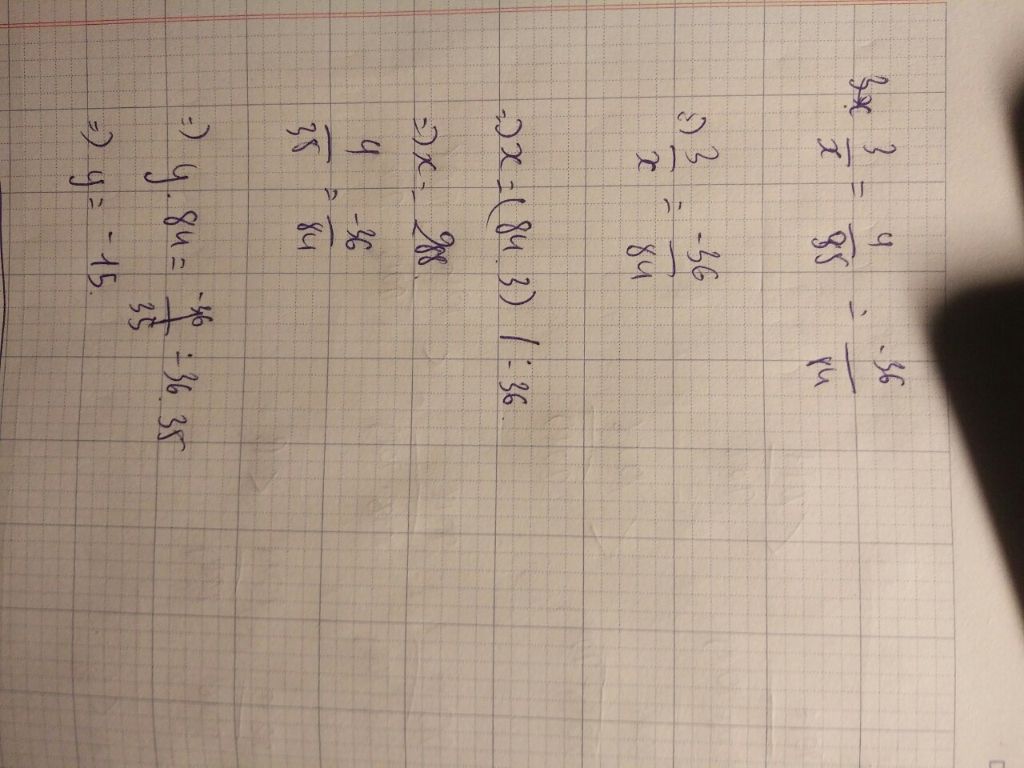 3/x = y/35 = -36/84
=) 3/x = -36/84
=) x = (84.3) : 36.
=) x = 288.
y/35 = -36/84
=) y.84 = -36.35
=) y = -15.